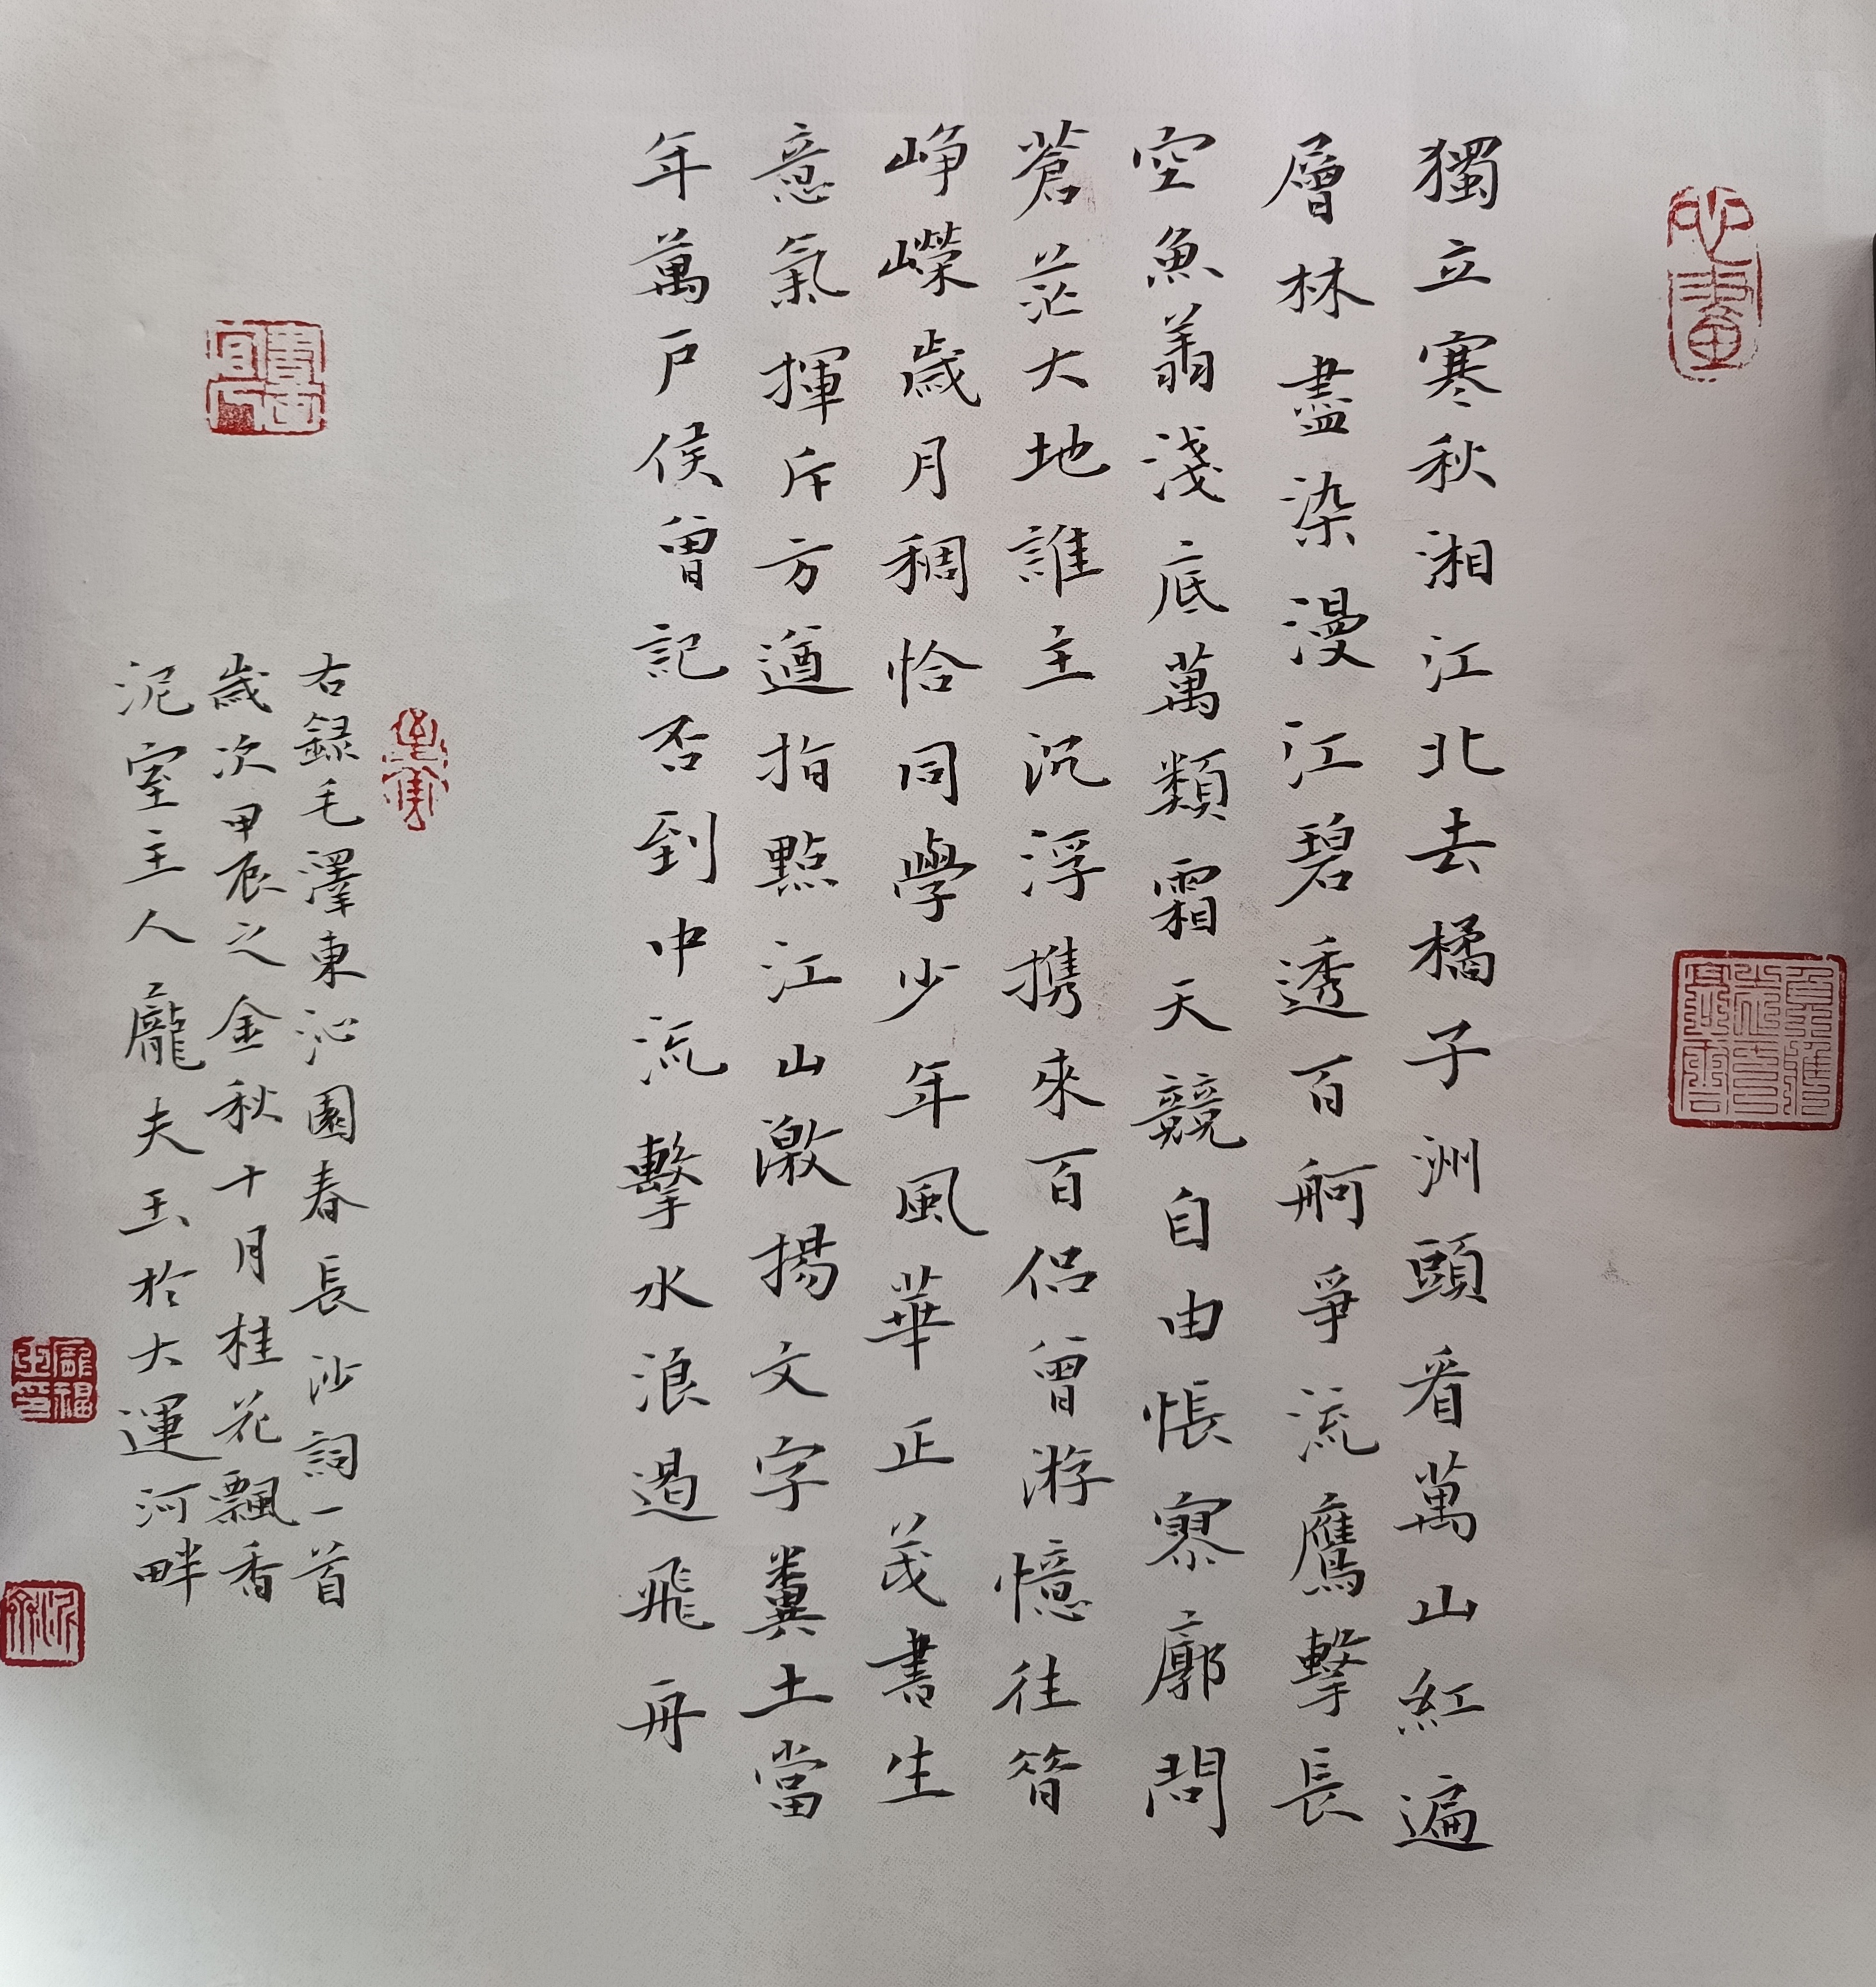 心畫
獨立寒秋湘江北去橘子洲頭看萬山紅遍
層林盡染漫江碧透百舸爭流鷹擊長
空魚翔淺底萬類霜天競自由悵寥廓問
蒼茫大地誰主沉浮携來百侣曾游憶往昔
峥嶸歲月稠恰同學少年風華正茂書生
意氣揮斥方遒指點江山激揚文字糞土當
年萬戶侯曾記否到中流擊水浪遏飛舟
右録毛澤東沁園春長沙詞一首
歲次甲辰之金秋十月桂花飄香
泥室主人龐夫玉於大運河畔